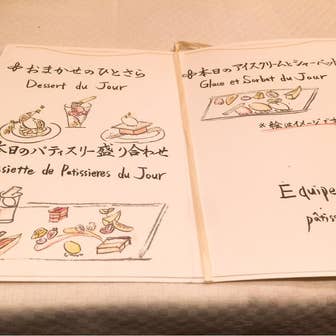 おまかせのひとさら
Dessert du Jour
本日のパティスリー盛り合わせ
ssiette de Patissieres du Jour
本日のアイスクリームとシャーベット
Glace et Sorbet du Jour
※絵はイメージです
Equipe
pâtiss